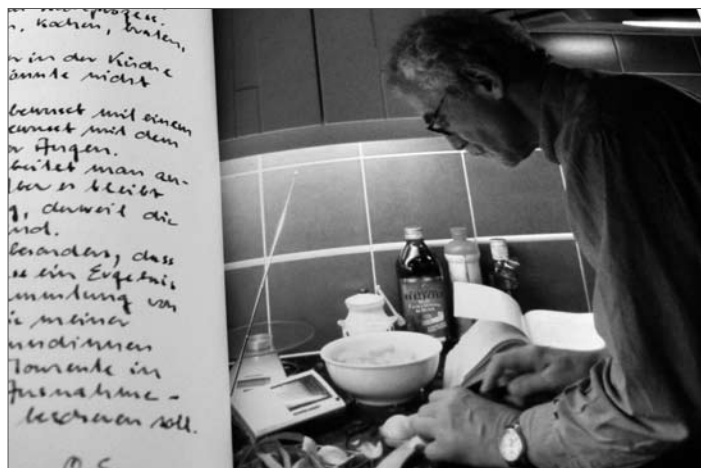 n, kochen, braten,
er in der Küche
könnte nicht
bewusst mit einem
bewusst mit dem
vor Augen.
beitet man an-
Aber es bleibt
g, derweil die
und.
besonders, dass
se ein Ergebnis
mmlung von
die meiner
eundinnen
Momente in
Ausnahme-
bescheren soll.